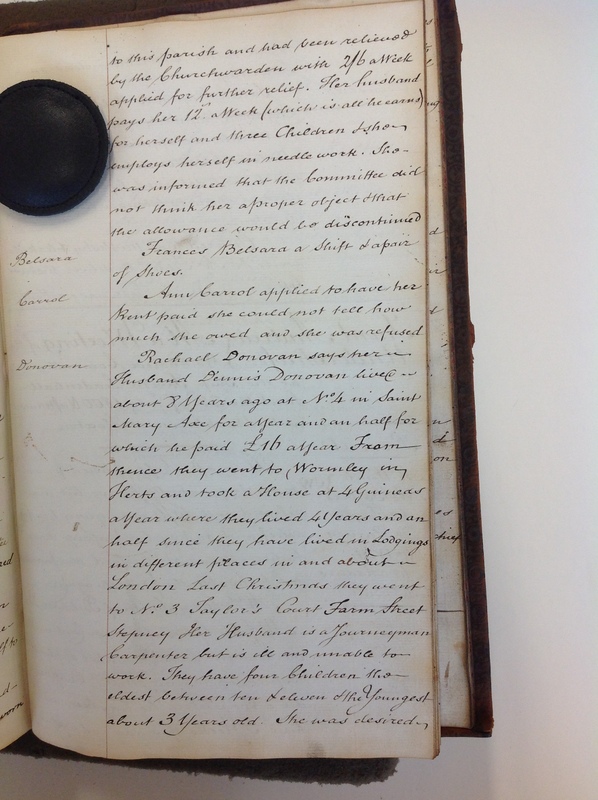 to this parish and had been relieved
by the Churchwarden with 2/6 a Week
applied for further relief. Her husband
pays her 12/- a Week (which is all he earns)
for herself and three Children & she
employs herself in needle work. She
was informed that the Committee did
not think her a proper object & that
the allowance would be discontinued
Belsara
Frances Belsara a Shift & a pair
of Shoes.
Carrol
Ann Carrol applied to have her
Rent paid she could not tell how
much she owed and she was refused
Donovan
Rachael Donovan says her
Husband Dennis Donovan lived
about 8 Years ago at No. 4 in Saint
Mary Axe for a Year and an half for
which he paid £16 a Year From
thence they went to Wormley in
Herts and took a House at 4 Guineas
a Year where they lived 4 Years and an
half since they have lived in Lodgings
in different places in and about
London Last Christmas they went
to No. 3 Taylor's Court Farm Street
Stepney Her Husband is a Journeyman
Carpenter but is ill and unable to
work. They have four Children the
eldest between ten & eleven & the Youngest
about 3 Years old. She was desired